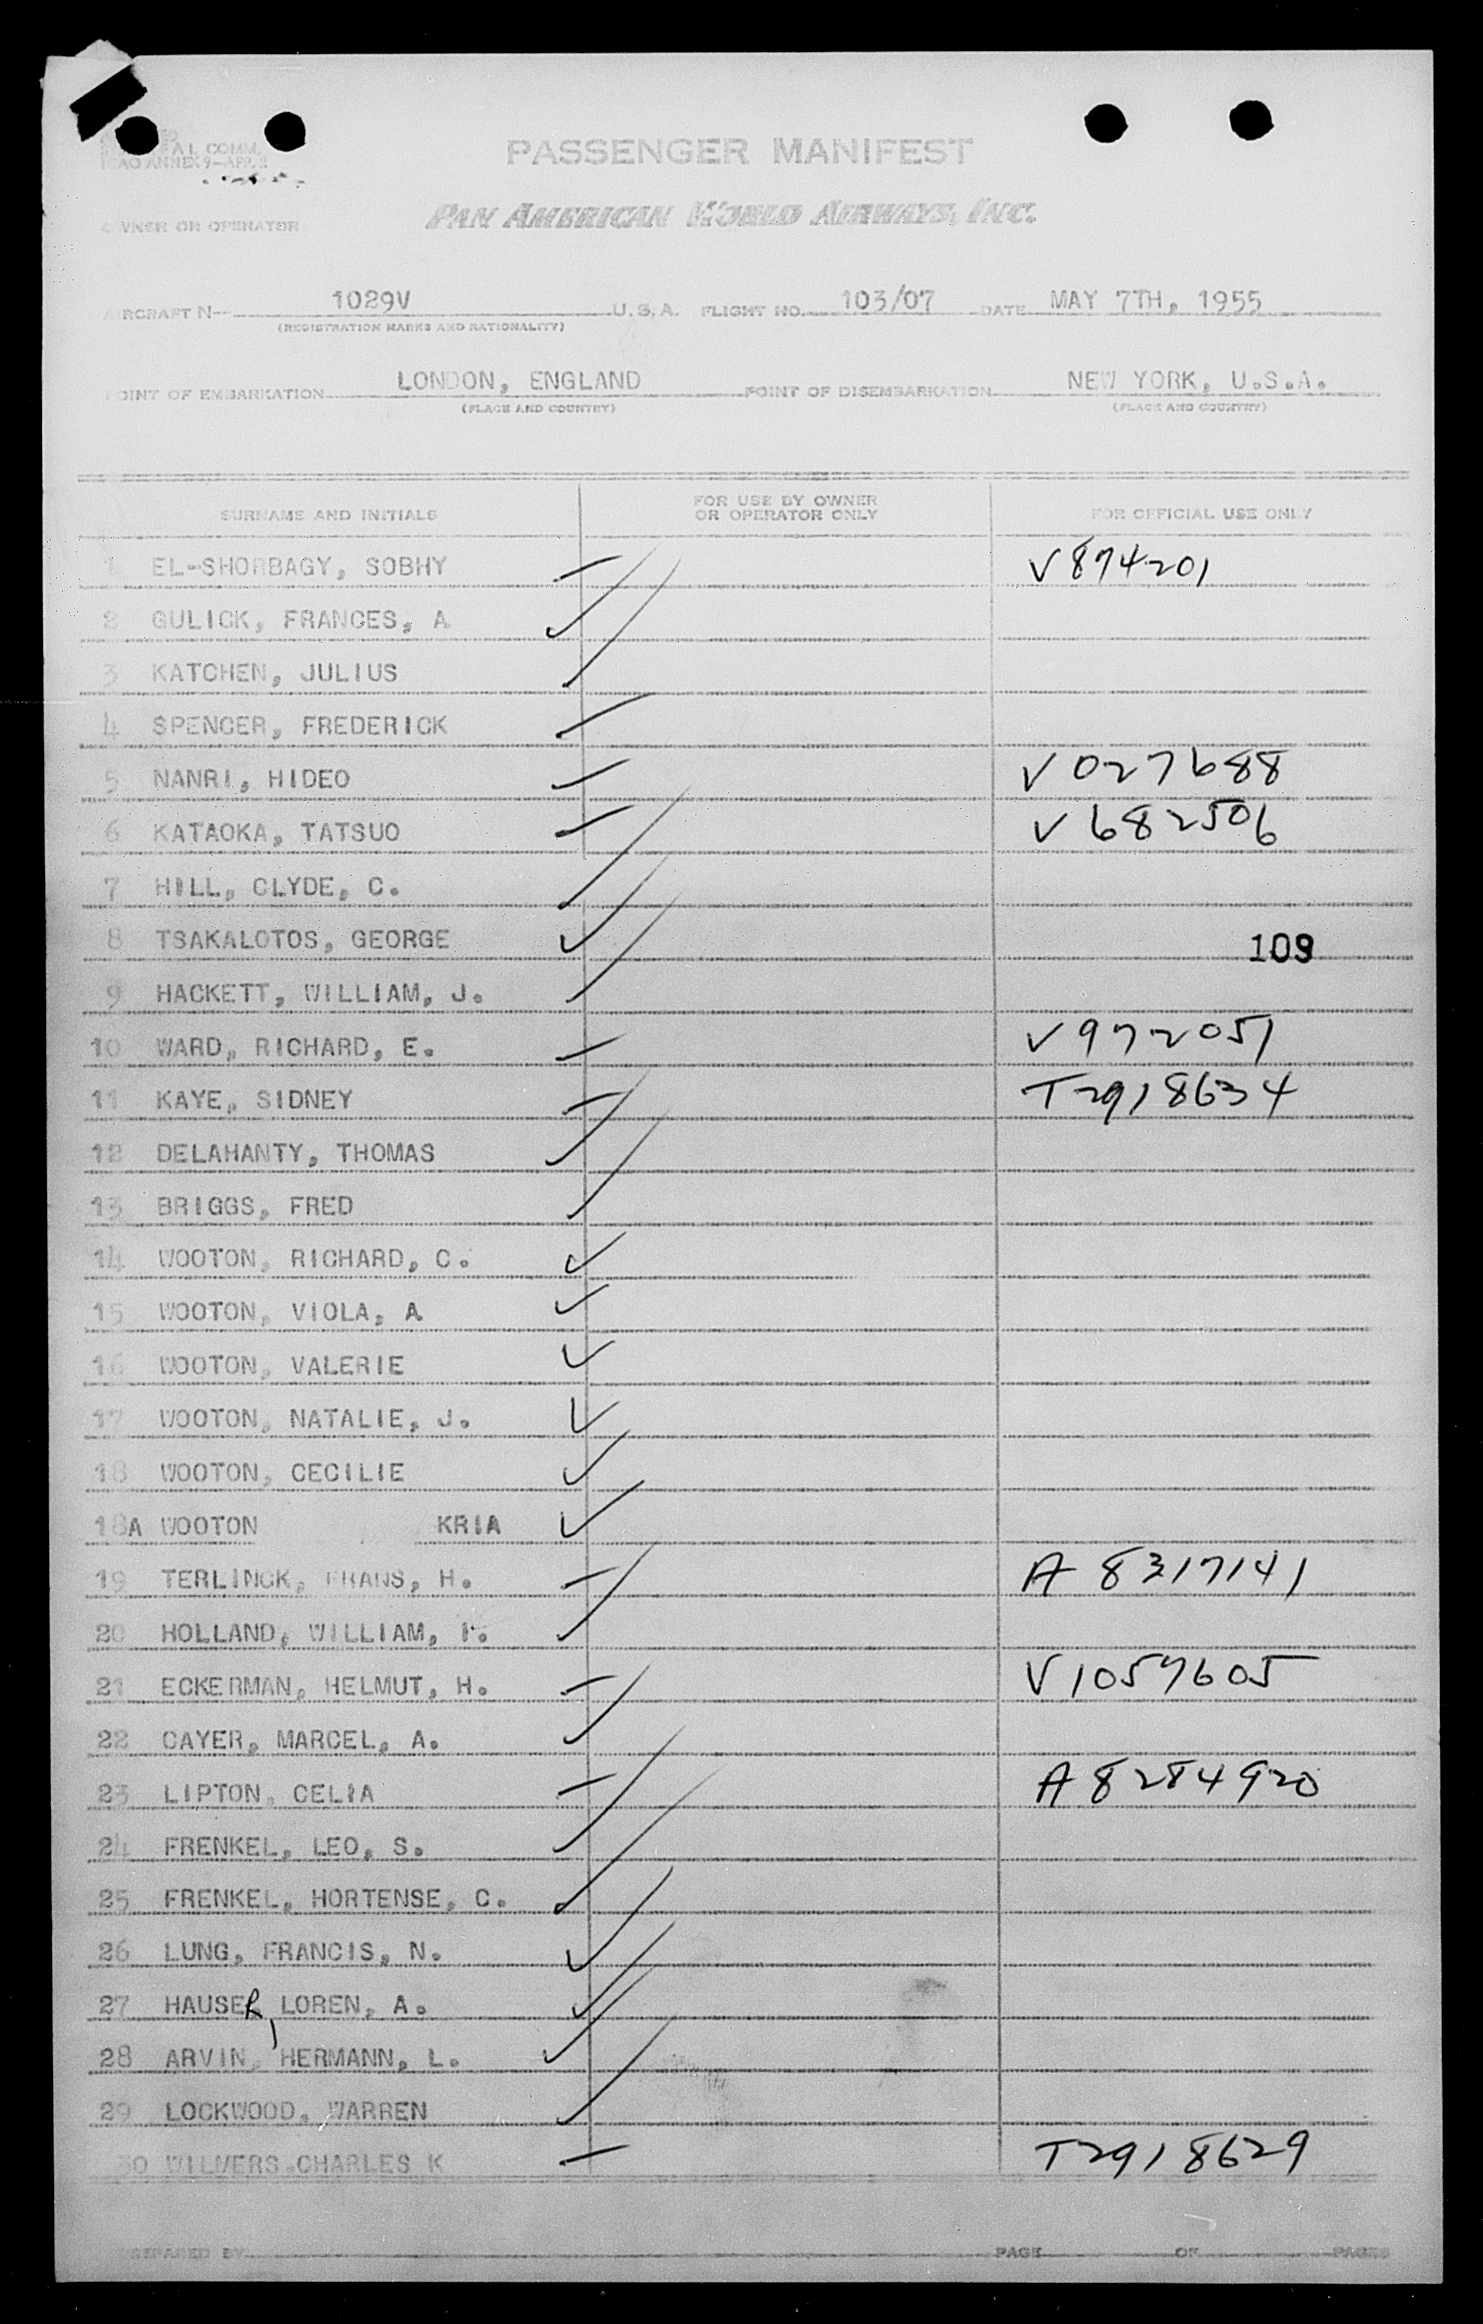 AL COMM.
ANNEX 9-APP. 2
PASSENGER MANIFEST
OWNER OR OPERATOR PAN AMERICAN WORLD AIRWAYS, INC.
AIRCRAFT N- 1029V U.S.A. FLIGHT NO. 103/07 DATE MAY 7TH, 1955
(REGISTRATION MARKS AND NATIONALITY)
POINT OF EMBARKATION LONDON, ENGLAND POINT OF DISEMBARKATION NEW YORK, U.S.A.
(PLACE AND COUNTRY) (PLACE AND COUNTRY)
SURNAME AND INITIALS FOR USE BY OWNER OR OPERATOR ONLY FOR OFFICIAL USE ONLY
1 EL-SHORBAGY, SOBHY V874201
2 GULICK, FRANCES, A
3 KATCHEN, JULIUS
4 SPENCER, FREDERICK
5 NANRI, HIDEO V027688
6 KATAOKA, TATSUO V682506
7 HILL, CLYDE, C.
8 TSAKALOTOS, GEORGE 109
9 HACKETT, WILLIAM, J.
10 WARD, RICHARD, E. V972051
11 KAYE, SIDNEY T2918634
12 DELAHANTY, THOMAS
13 BRIGGS, FRED
14 WOOTON, RICHARD, C.
15 WOOTON, VIOLA, A
16 WOOTON, VALERIE
17 WOOTON, NATALIE, J.
18 WOOTON, CECILIE
18A WOOTON KRIA
19 TERLINCK, FRANS, H. A8317141
20 HOLLAND, WILLIAM,
21 ECKERMAN, HELMUT, H. V1057605
22 CAYER, MARCEL, A.
23 LIPTON, CELIA A8284920
24 FRENKEL, LEO, S.
25 FRENKEL, HORTENSE, C.
26 LUNG, FRANCIS, N.
27 HAUSER, LOREN, A.
28 ARVIN, HERMANN, L.
29 LOCKWOOD, WARREN
30 WILMERS CHARLES K T2918629
PREPARED BY PAGE OF PAGES